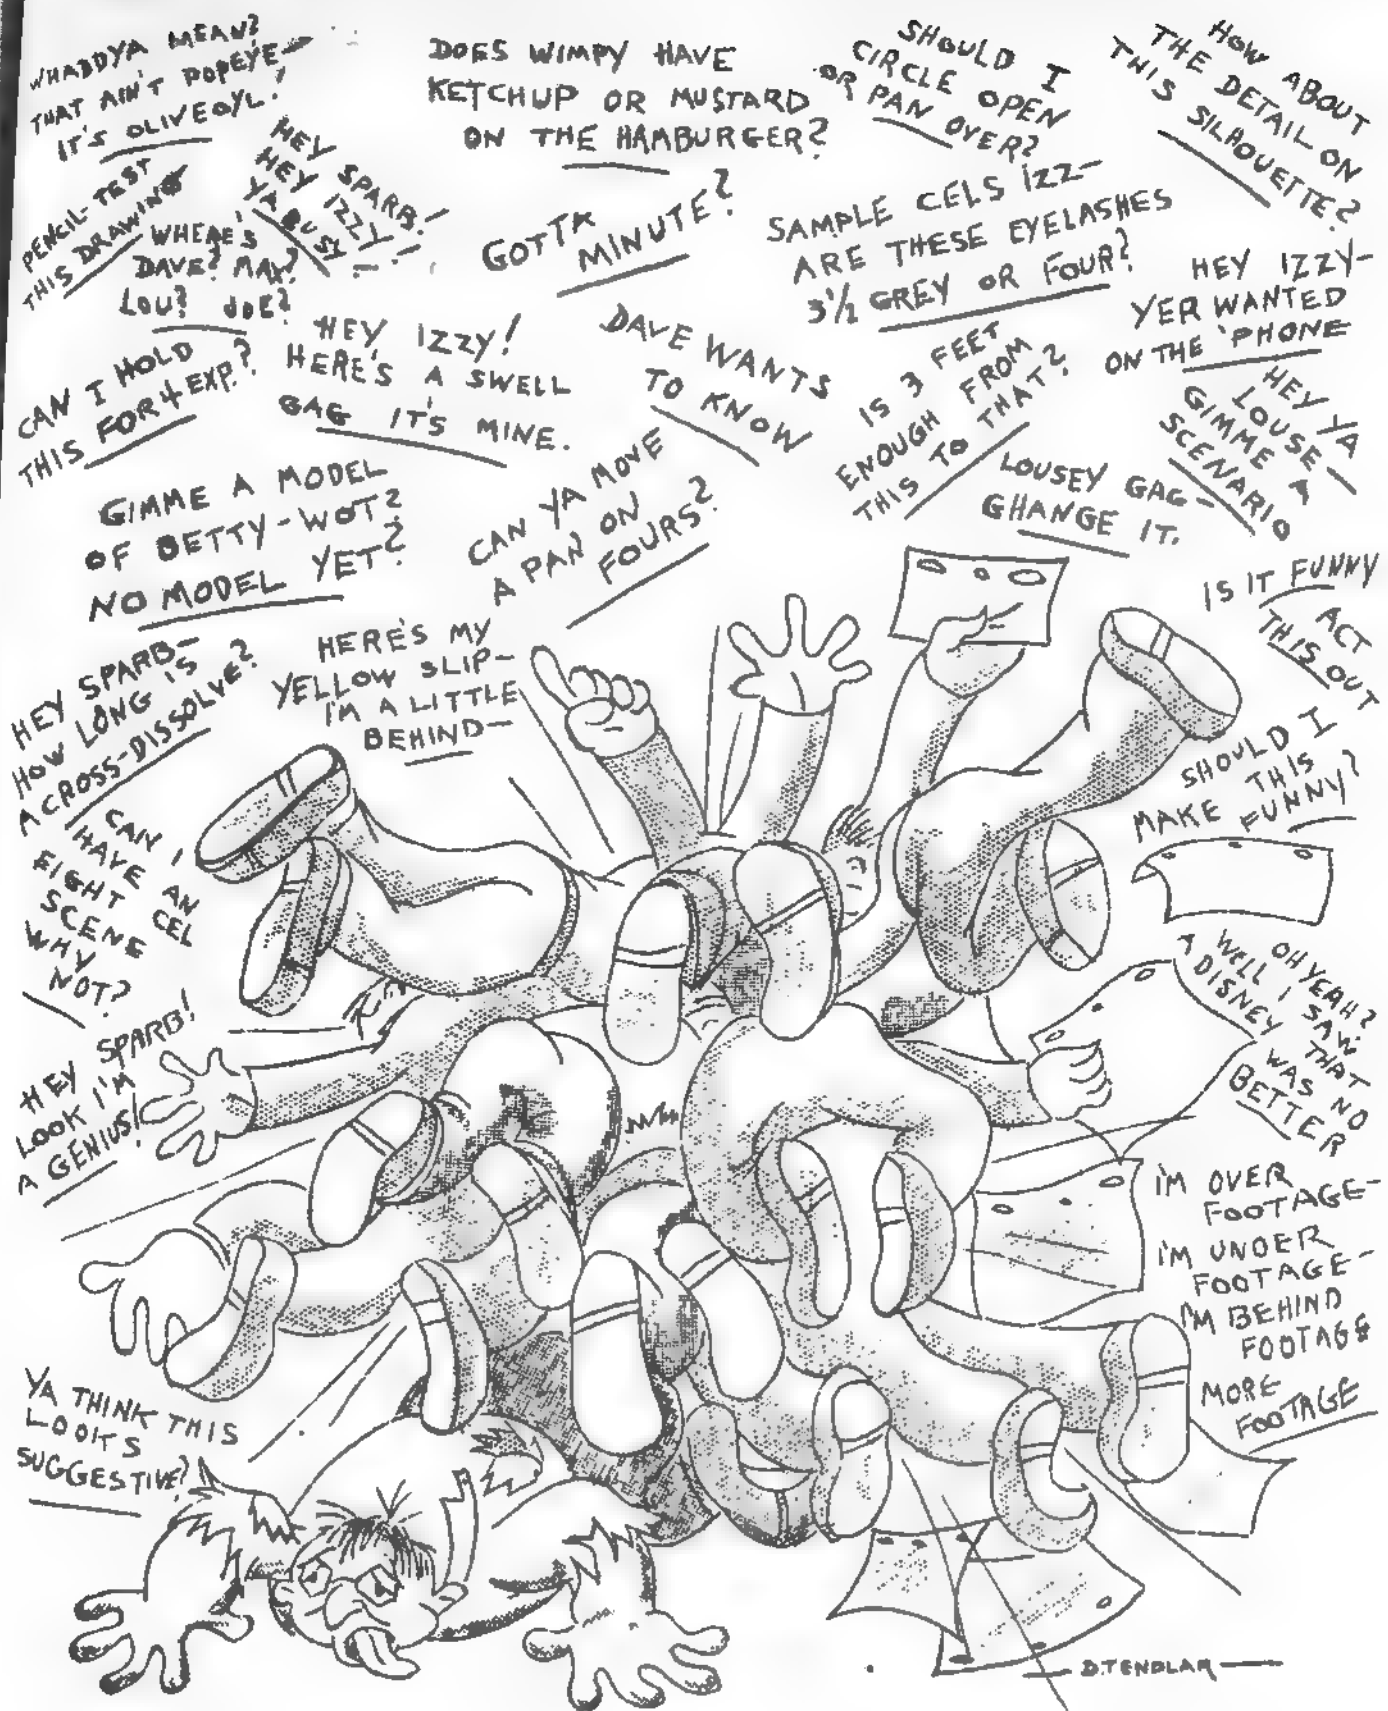 WHADDYA MEAN?
THAT AIN'T POPEYE—
IT'S OLIVEOYL!
DOES WIMPY HAVE
KETCHUP OR MUSTARD
ON THE HAMBURGER?
SHOULD I
CIRCLE OPEN
OR PAN OVER?
HOW ABOUT
THE DETAIL ON
THIS SILHOUETTE?
PENCIL-TEST
THIS DRAWING
HEY SPARB!
HEY IZZY!
YA BUSY—!
WHERE'S
DAVE? MAX?
LOU? JOE?
GOTTA
MINUTE?
SAMPLE CELS IZZ—
ARE THESE EYELASHES
3½ GREY OR FOUR?
HEY IZZY—
YER WANTED
ON THE 'PHONE
CAN I HOLD
THIS FOR 4 EXP.?
HEY IZZY!
HERE'S A SWELL
GAG IT'S MINE.
DAVE WANTS
TO KNOW
IS 3 FEET
ENOUGH FROM
THIS TO THAT?
HEY YA
LOUSE—
GIMME A
SCENARIO
GIMME A MODEL
OF BETTY-WOT?
NO MODEL YET?
CAN YA MOVE
A PAN ON
FOURS?
LOUSEY GAG—
GHANGE IT.
IS IT FUNNY
ACT
THIS OUT
HEY SPARB—
HOW LONG IS
A CROSS-DISSOLVE?
HERE'S MY
YELLOW SLIP—
I'M A LITTLE
BEHIND—
SHOULD I
MAKE THIS
FUNNY?
CAN I
HAVE AN
EIGHT CEL
SCENE
WHY
NOT?
OH YEAH?
WELL I SAW
A DISNEY THAT
WAS NO
BETTER
HEY SPARB!
LOOK I'M
A GENIUS!
I'M OVER
FOOTAGE—
I'M UNDER
FOOTAGE—
I'M BEHIND
FOOTAGE
MORE
FOOTAGE
YA THINK THIS
LOOKS
SUGGESTIVE?
D.TENDLAR